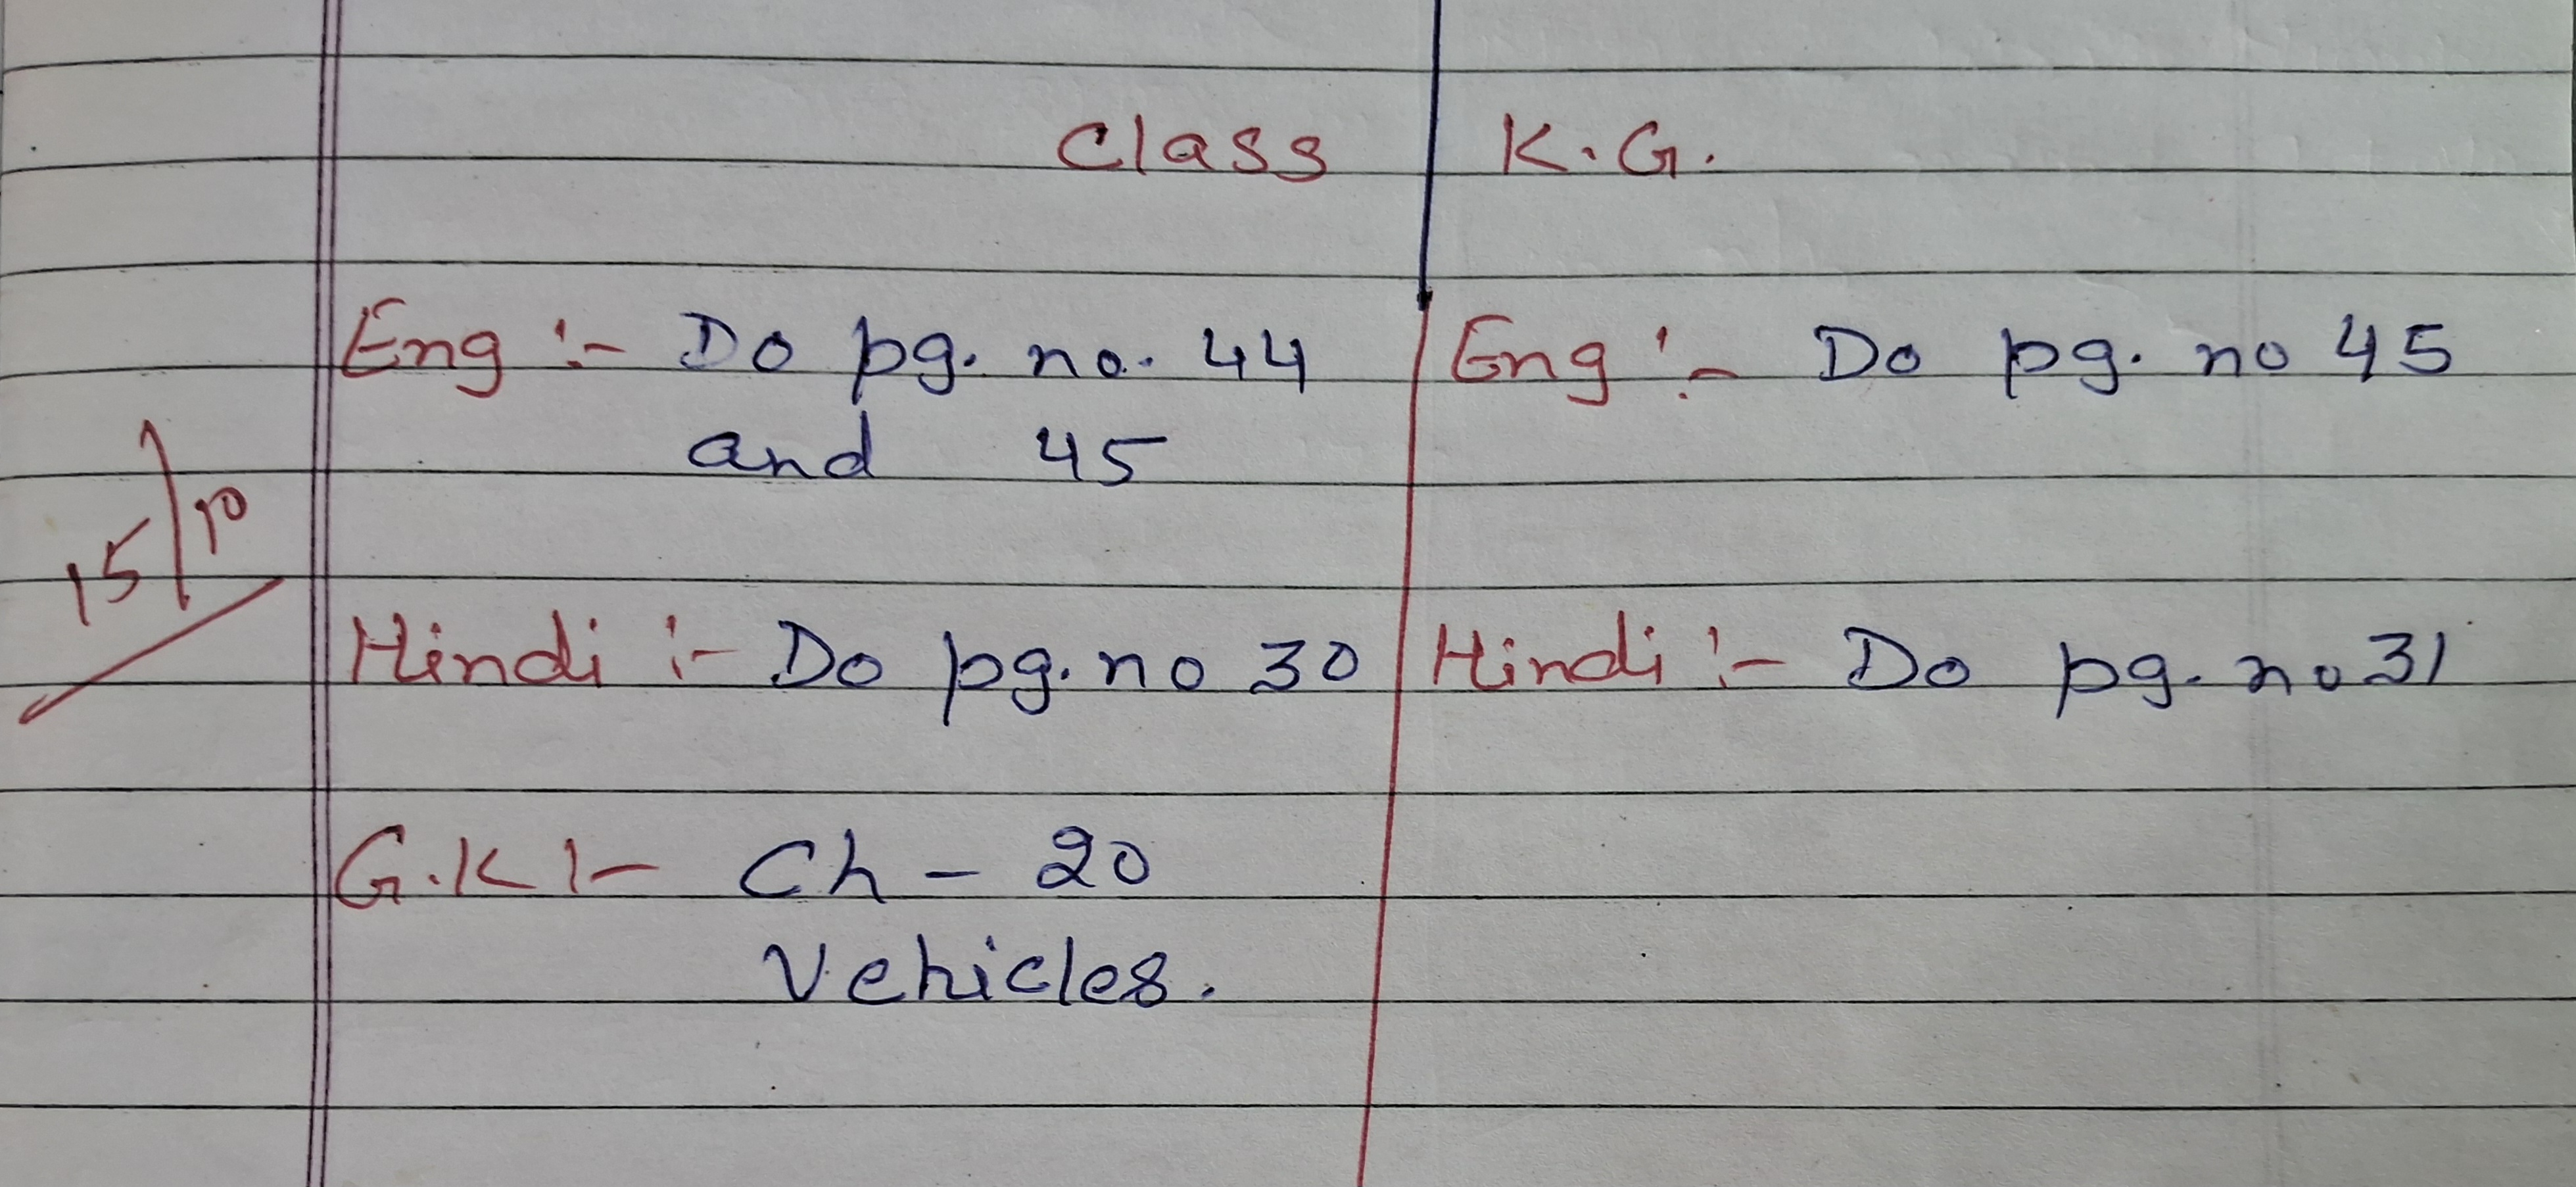 Class K.G.
15/10
Eng :- Do pg. no. 44
and 45
Hindi :- Do pg. no 30
G.K :- Ch - 20
Vehicles.
Eng :- Do pg. no 45
Hindi :- Do pg. no 31